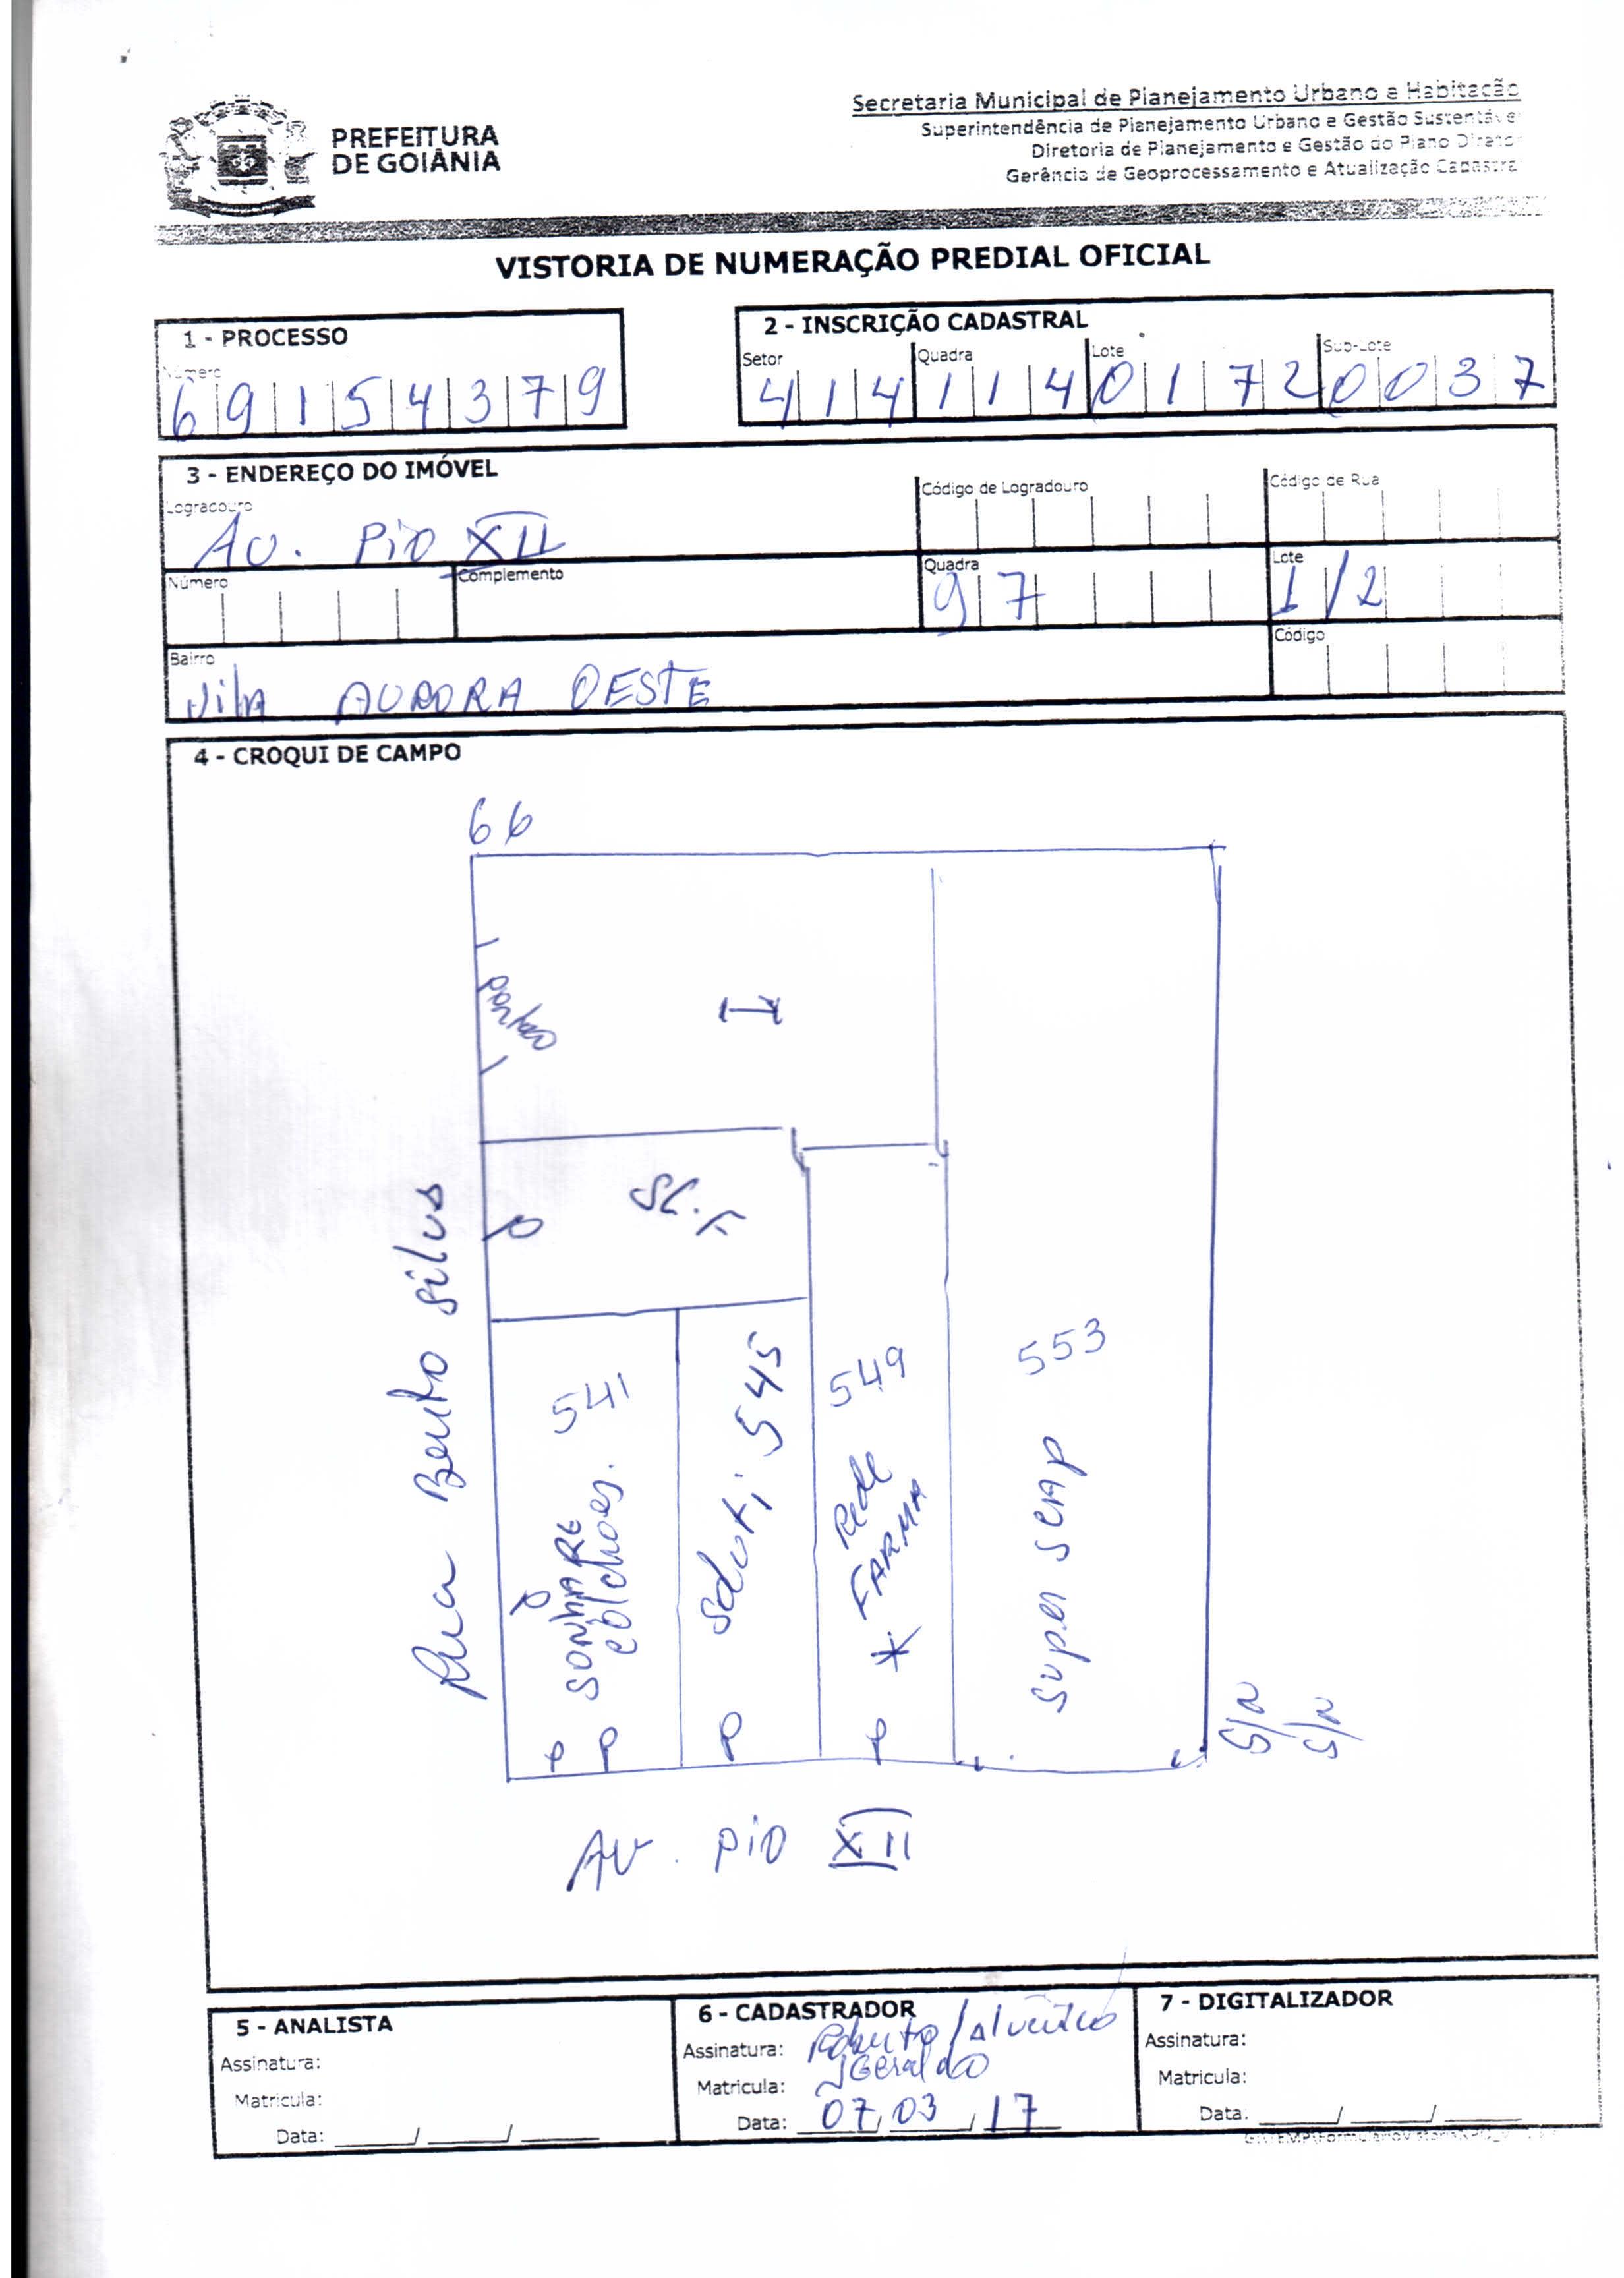 PREFEITURA
DE GOIÂNIA
Secretaria Municipal de Planejamento Urbano e Habitação
Superintendência de Planejamento Urbano e Gestão Sustentável
Diretoria de Planejamento e Gestão do Plano Diretor
Gerência de Geoprocessamento e Atualização Cadastral
VISTORIA DE NUMERAÇÃO PREDIAL OFICIAL
1 - PROCESSO
Número
69154379
2 - INSCRIÇÃO CADASTRAL
Setor Quadra Lote Sub-Lote
414 114 0172 0037
3 - ENDEREÇO DO IMÓVEL
Logradouro Código de Logradouro Código de Rua
Av. Pio XII
Número Complemento Quadra Lote
97 1/2
Bairro Código
Vila AURORA OESTE
4 - CROQUI DE CAMPO
66
portão
I
SC.F
Rua Bento Silus
SONHARE colchoes. 541
Solut; 545
Rede FARMA 549
*
Super Senp 553
S/N
S/N
AV. Pio XII
5 - ANALISTA
Assinatura:
Matrícula:
Data: ____/____/____
6 - CADASTRADOR
Assinatura: Roberto /
Geraldo
Matrícula:
Data: 07/03/17
7 - DIGITALIZADOR
Assinatura:
Matrícula:
Data. ____/____/____